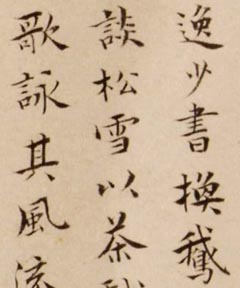 逸少書換鵝
談松雪以茶
歌詠其風流